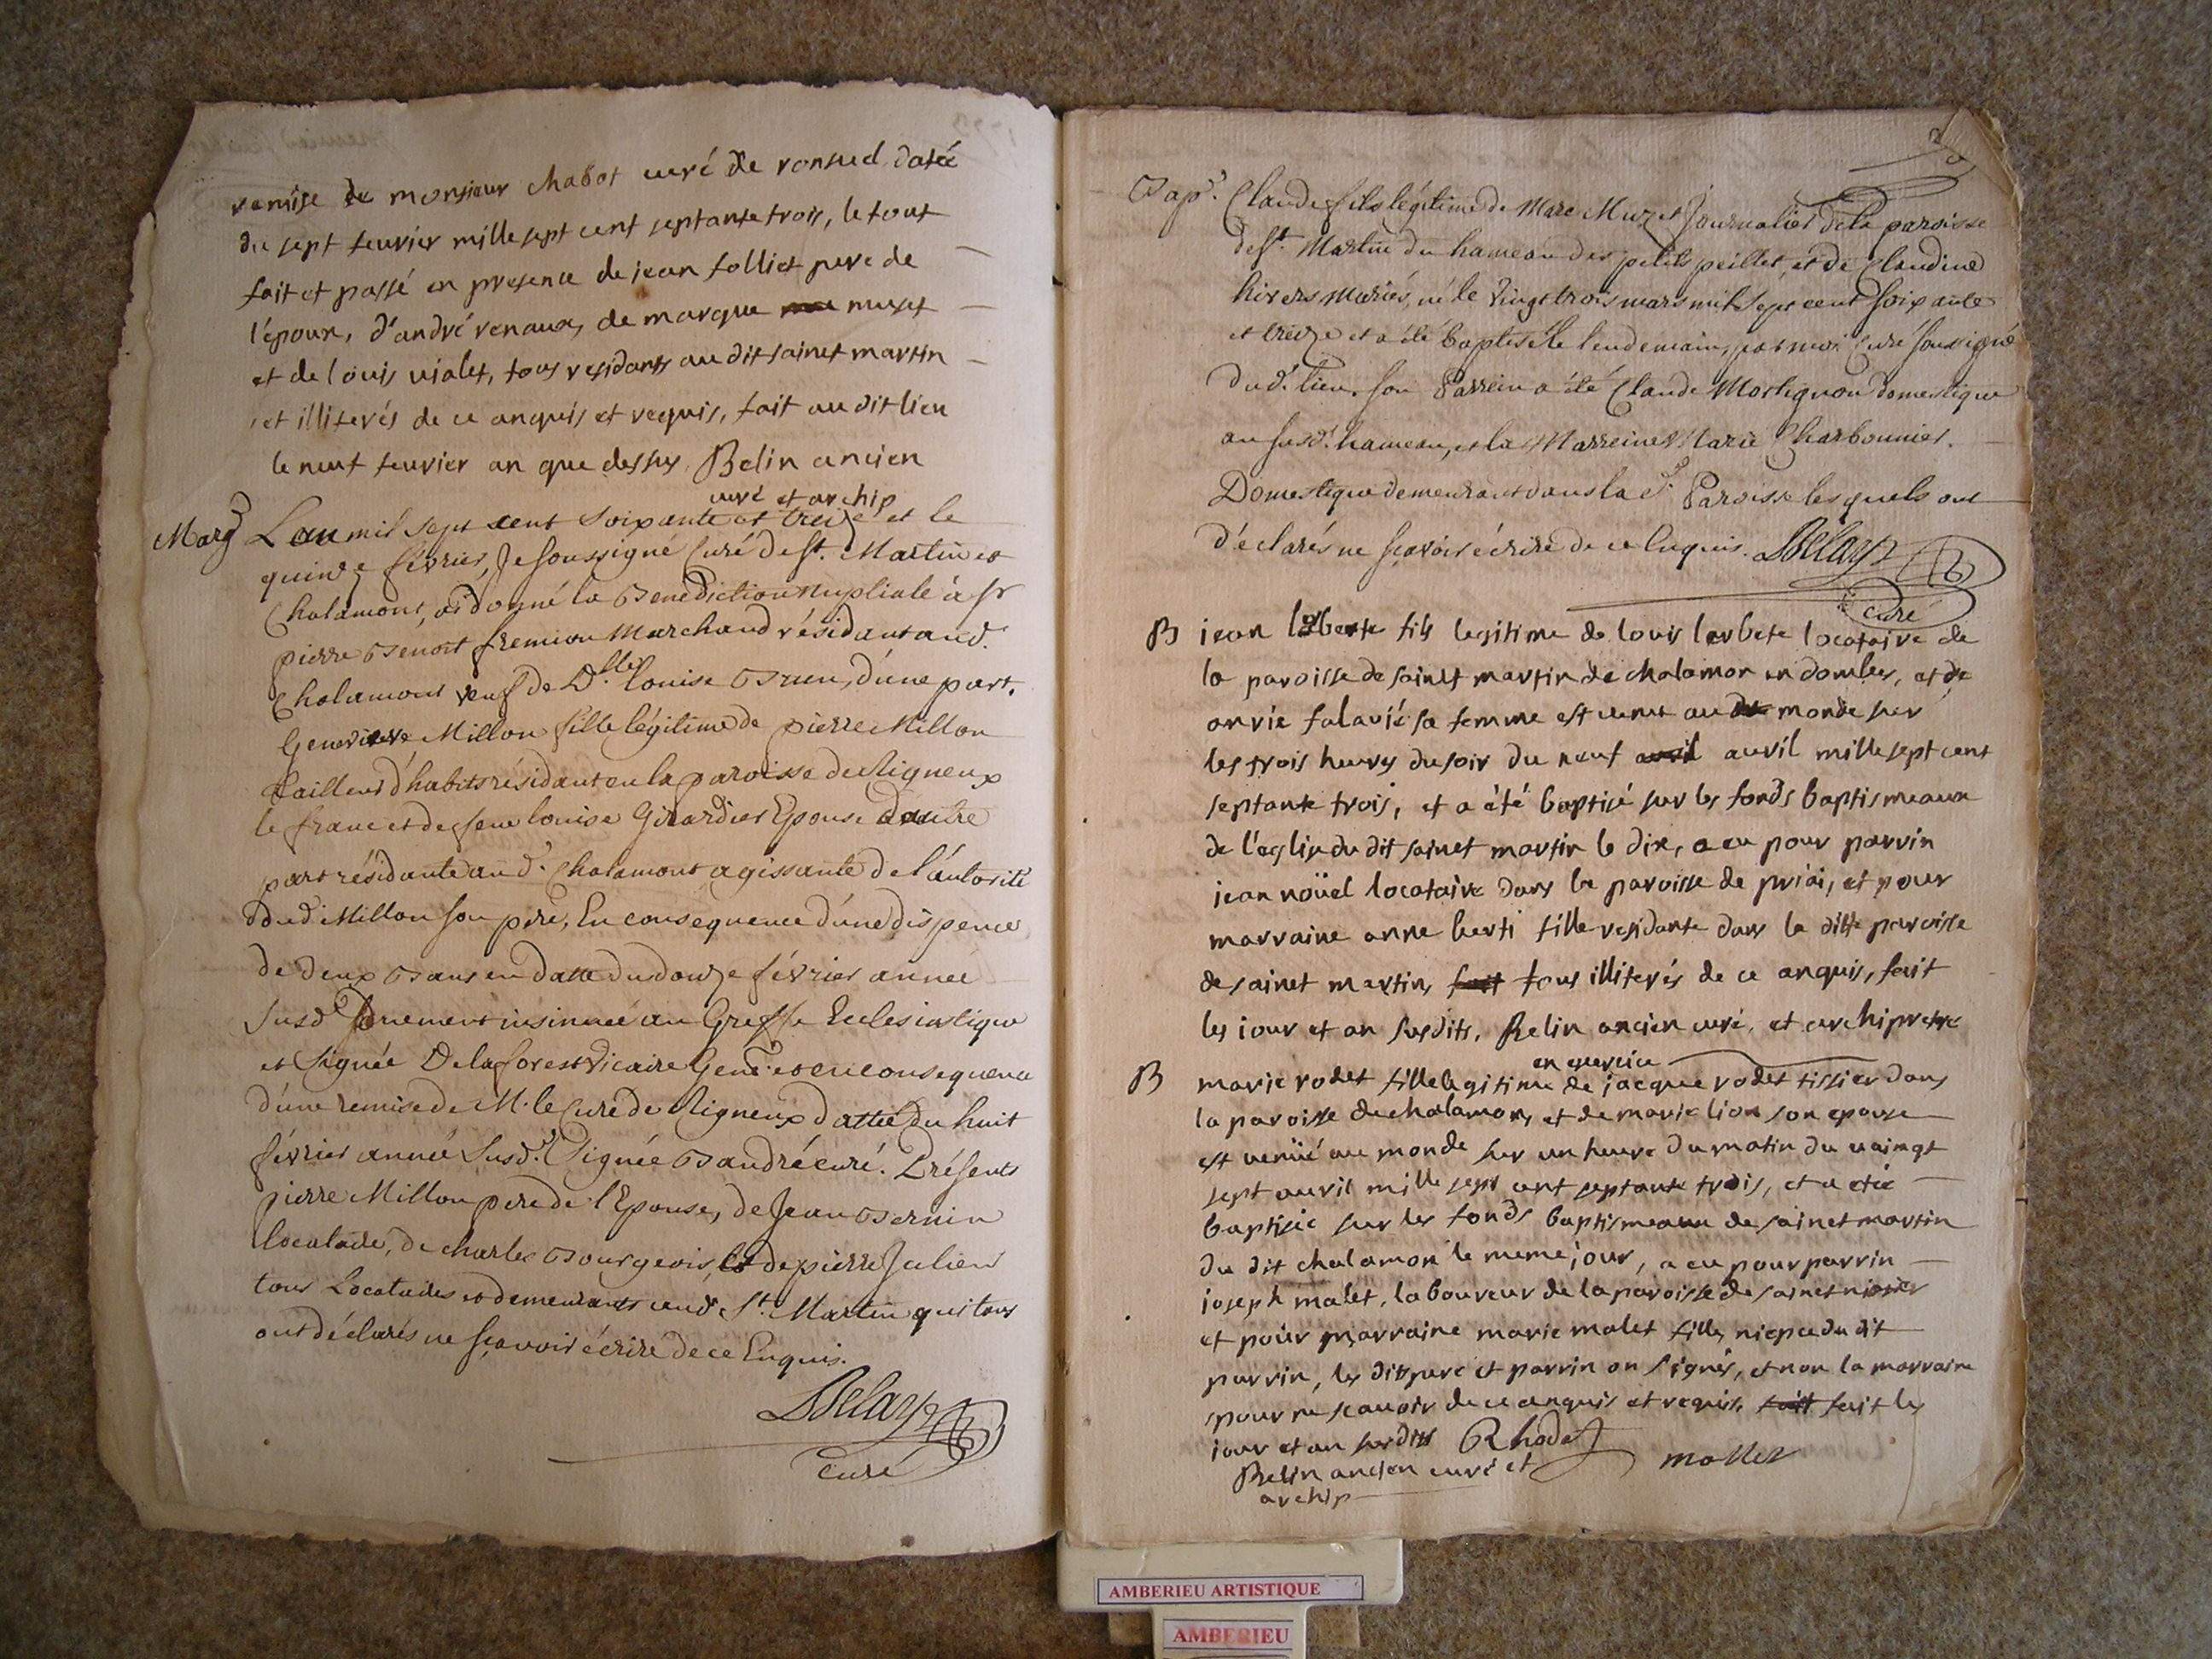 remise de monsieur chabot curé de ronsuel datée
du sept feuvrier mille sept cent septante trois, le tout
fait et passé en presence de jean folliet pere de
l'epoux, d'andré renaux, de marque muset
et de louis violet, tous residants au dit sainct martin
et illiterés de ce anquis et requis, fait au dit lien
le neuf feuvrier an que dessus Belin ancien
curé et archip
Marg Lan mil sept cent soixante et treize et le
quinze février, Je soussigné Curé de St. Martin et
Chalamont, ai donné la Benediction Nuptiale à sr
pierre Benoit fremion Marchand résidant aud.
Chalamont veuf de D.lle Louise Brun, d'une part.
Genevieve Millon fille légitime de pierre Millon
tailleur d'habits résidant en la paroisse de Rigneux
le franc et de feue louise Girardier Epouse d'autre
part résidante aud. Chalamont agissante de l'autorité
dud. Millon son pere, En consequence d'une dispence
de deux Bans en datte du douze février année
susd. insinuée au Greffe Eclesiastique
et signée Delaforest vicaire Gené. et en consequence
d'une remise de M. le Curé de Rigneux dattée du huit
février année susd. Signée Bandré curé. Présents
pierre Millon pere de l'Epouse, de Jean Bernin
locataire, de charles Bourgeois, et de pierre Julien
tous Locataires et demeurants aud. St. Martin qui tous
ont déclarés ne sçavoir écrire de ce Enquis.
Delay
curé
Bap. Claude fils légitime de Marc Muzet Journalier de la paroisse
de St. Martin du hameau des petits peillet, et de Claudine
hivers Mariés, né le vingt trois mars mil sept cent soixante
et treize et a été baptisé le lendemain, par moi Curé soussigné
dud. lieu. Son Parrein a été Claude Mortignon domestique
au susd. hameau, et la Marreine Marie Charbonnier.
Domestique demeurant dans la d. Paroisse lesquels ont
déclarés ne sçavoir écrire de ce Enquis. Delay
curé
B jean fils legitime de louis locataire de
la paroisse de sainct martin de chalamon en dombes, et de
anrie falavié sa femme est venut au monde sur
les trois heures du soir du neuf auvil mille sept cent
septante trois, et a été baptisé sur les fonds baptismeaux
de l'eglise du dit sainct martin le dix, a eu pour parrin
jean noüel locataire dans la paroisse de priai, et pour
marraine anne berti fille residante dans la ditte paroisse
de sainct martin, tous illiterés de ce anquis, fait
les jour et an susdits, Belin ancien curé, et archipretre
en exercice
B marie rodet fille legitime de jacque rodet tissier dans
la paroisse de chalamon, et de marie lion son epouse
est venüé au monde sur un heure du matin du vaingt
sept auvil mille sept cent septante trois, et a étée
baptisée sur les fonds baptismeaux de sainct martin
du dit chalamon le meme jour, a eu pour parrin
joseph malet, laboureur de la paroisse de sainct nisier
et pour marraine marie malet fille, niepce du dit
parrin, les dits pere et parrin on signés, et non la marraine
pour ne scauoir de ce anquis et requis, fait les
jour et an susdits Rhodet
Belin ancien curé et mollet
archip
AMBERIEU ARTISTIQUE
AMBERIEU